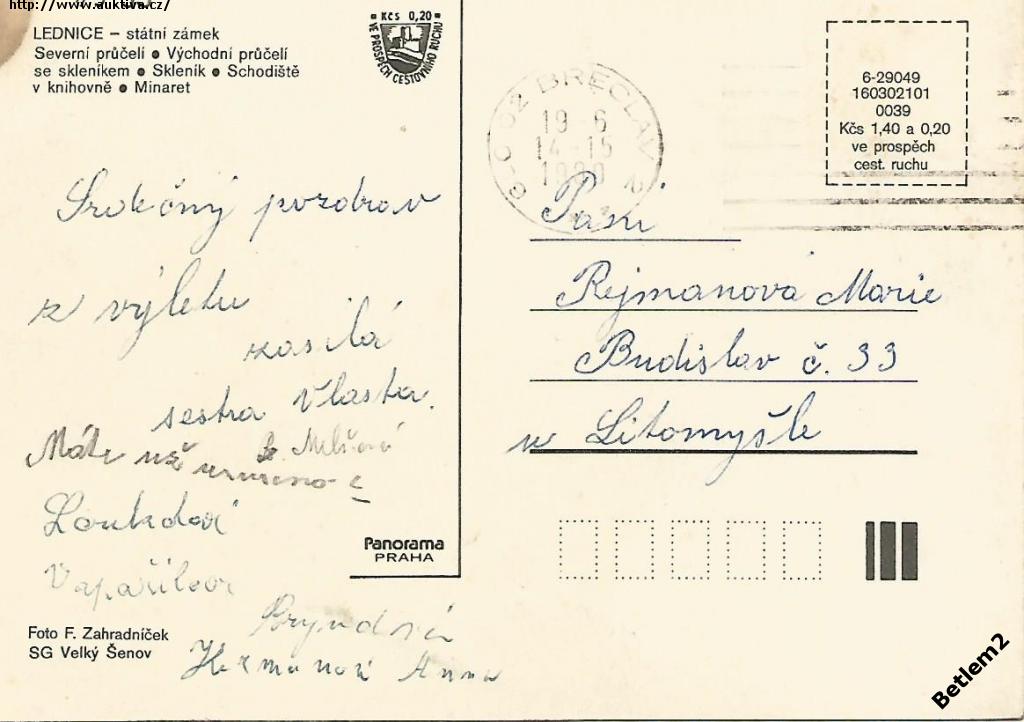 http://www.auktiva.cz/
LEDNICE – státní zámek
Severní průčelí • Východní průčelí
se skleníkem • Skleník • Schodiště
v knihovně • Minaret
Kčs 0,20
VE PROSPĚCH CESTOVNÍHO RUCHU
BŘECLAV 2
19-6
14-15
6-29049
160302101
0039
Kčs 1,40 a 0,20
ve prospěch
cest. ruchu
Srdečný pozdrav
z výletu
zasílá
sestra Vlasta.
Máte už
Loukdoví
Panorama
PRAHA
Foto F. Zahradníček
SG Velký Šenov
Heřmanová Anna
Paní
Rejmanová Marie
Budislav č. 33
u Litomyšle
Betlem2